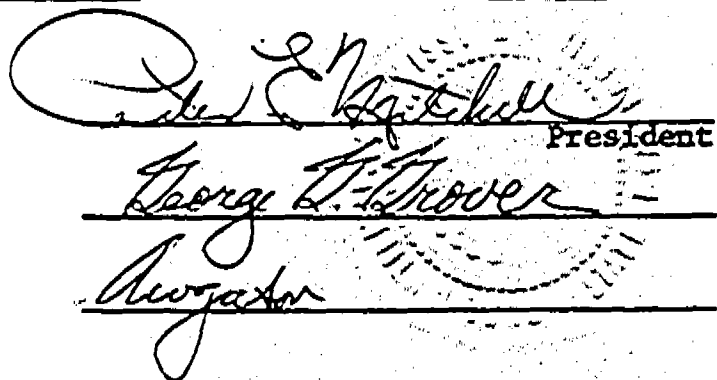 Peter E. Mitchell
President
George G. Grover